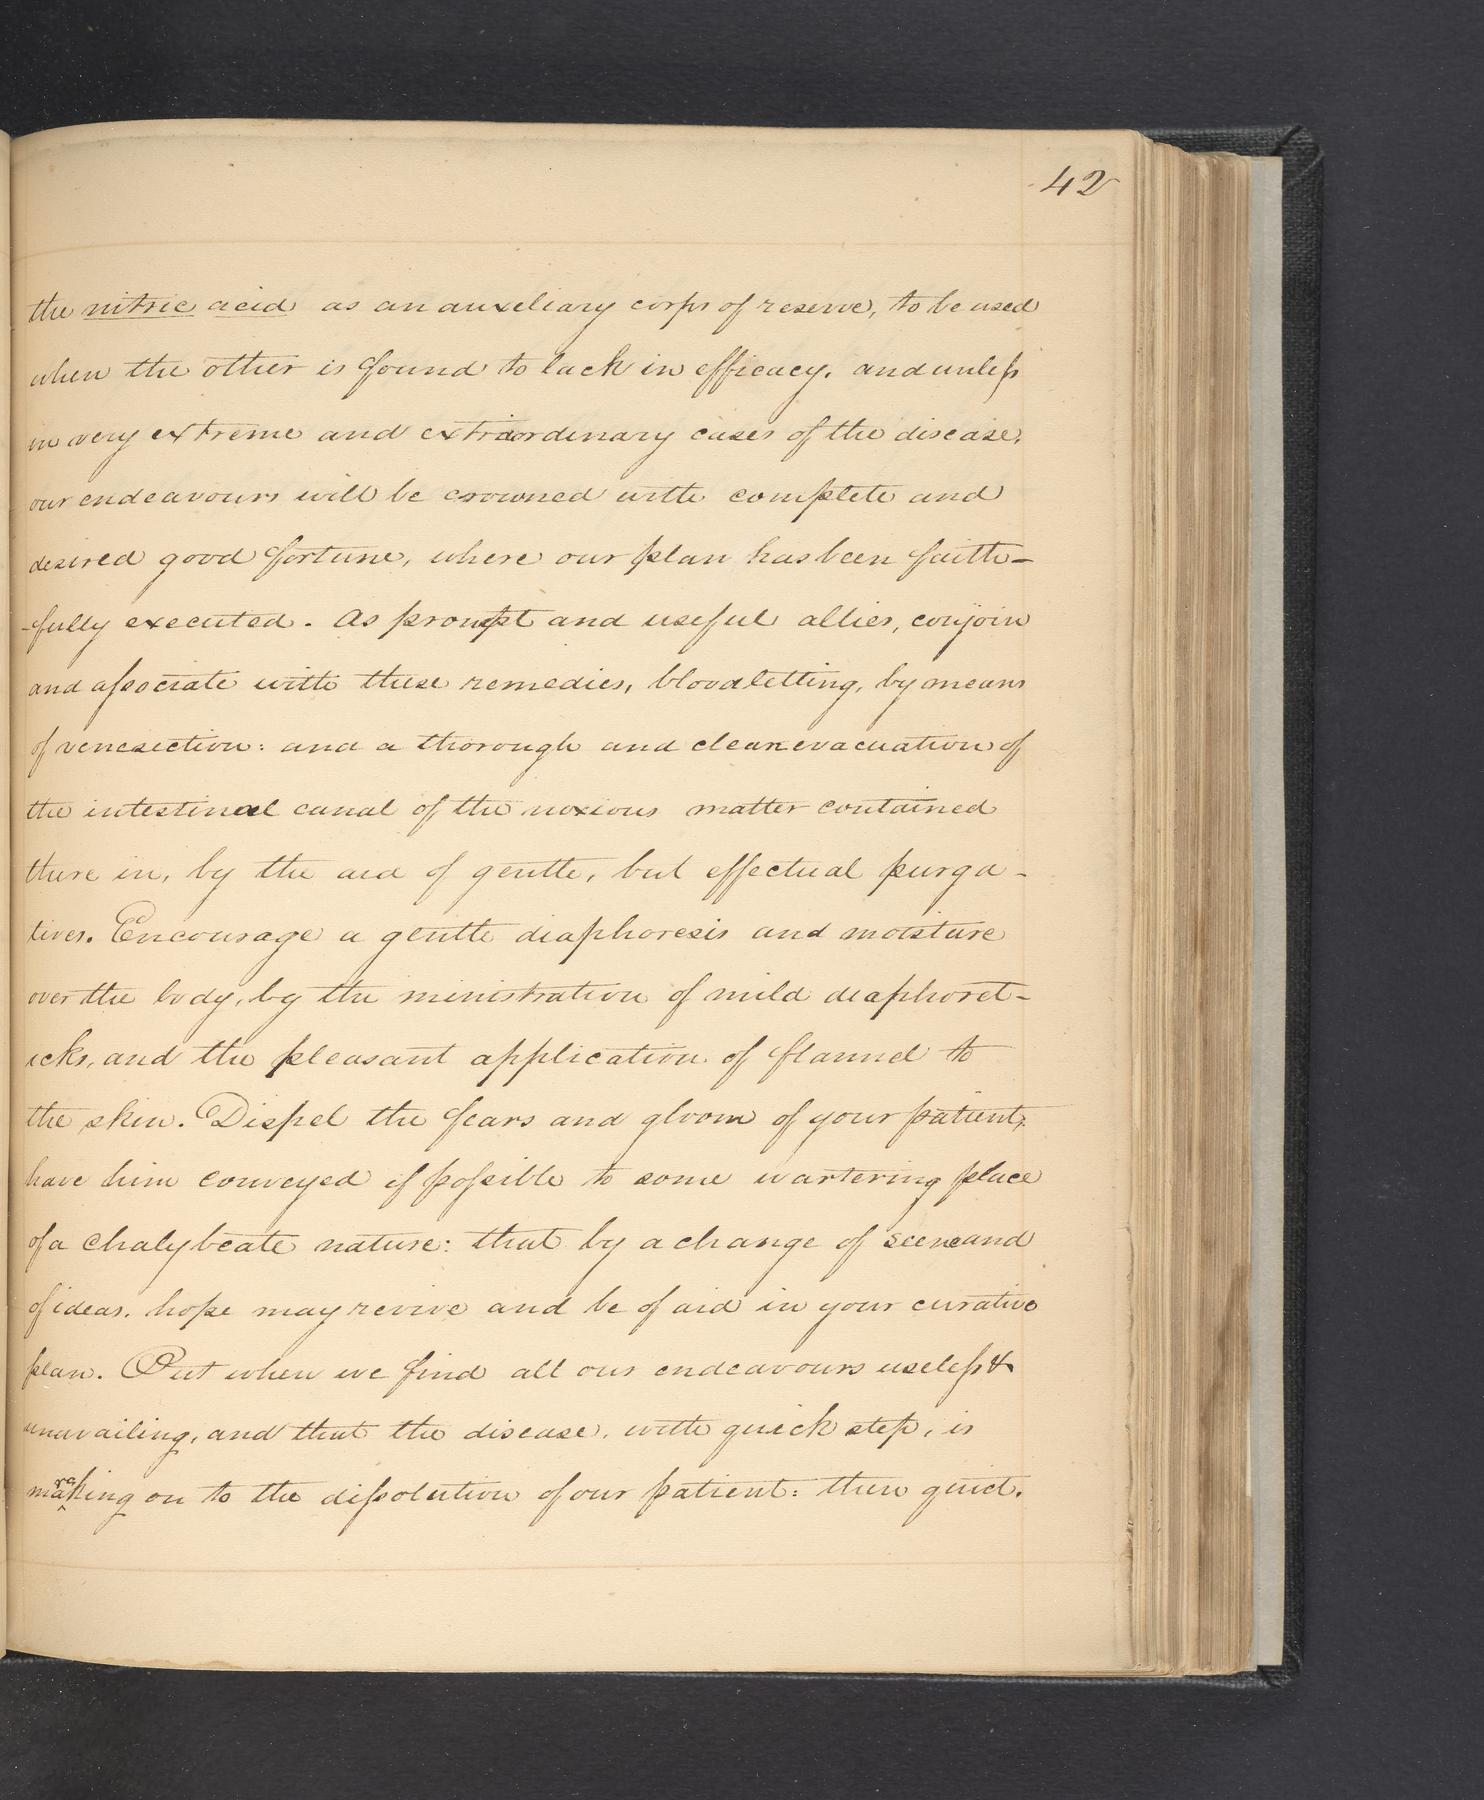 42
the nitric acid as an auxeliary corps of reserve, to be used
when the other is found to lack in efficacy. and unless
in very extreme and extraordinary cases of the disease,
our endeavours will be crowned with complete and
desired good fortune, where our plan has been faith-
-fully executed. As prompt and useful allies, conjoin
and associate with these remedies, bloodletting, by means
of venesection: and a thorough and clean evacuation of
the intestinal canal of the noxious matter contained
there in, by the aid of gentle, but effectual purga-
tives. Encourage a gentle diaphoresis and moisture
over the body, by the ministration of mild diaphoret-
icks, and the pleasant application of flannel to
the skin. Dispel the fears and gloom of your patient,
have him conveyed if possible to some wartering place
of a chalybeate nature: that by a change of scene and
of ideas. hope may revive and be of aid in your curative
plan. But when we find all our endeavours useless &
unavailing, and that the disease, with quick step, is
making on to the dissolution of our patient: then quiet.